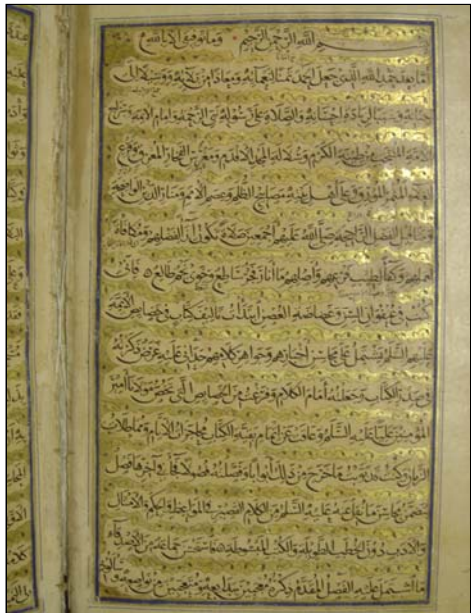 بسم الله الرحمن الرحيم وما توفيقي الا بالله
اما بعد حمد الله الذي جعل الحمد ثمنا لنعمائه ومعاذا من بلائه ووسيلا الى
جنانه وسببا لزيادة احسانه والصلاة على رسوله نبي الرحمة وامام الائمة وسراج
الامة المنتخب من طينة الكرم وسلالة المجد الاقدم ومغرس الفخار المعرق وفرع
العلاء المثمر المورق وعلى اهل بيته مصابيح الظلم وعصم الامم ومنار الدين الواضحة
ومثاقيل الفضل الراجحة صلى الله عليهم اجمعين صلاة تكون ازاء لفضلهم ومكافاة
لعملهم وكفاء لطيب فرعهم واصلهم ما انار فجر ساطع وخوى نجم طالع فاني
كنت في عنفوان السن وغضاضة الغصن ابتدات بتاليف كتاب في خصائص الائمة
عليهم السلام يشتمل على محاسن اخبارهم وجواهر كلامهم حداني عليه غرض ذكرته
في صدر الكتاب وجعلته امام الكلام وفرغت من الخصائص التي تخص مولانا امير
المؤمنين عليا عليه السلام وعاقت عن اتمام بقية الكتاب محاجزات الايام ومماطلات
الزمان وكنت قد بوبت ما خرج من ذلك ابوابا وفصلته فصولا فجاء في اخرها فصل
يتضمن محاسن ما نقل عنه عليه السلام من الكلام القصير في المواعظ والحكم والامثال
والاداب دون الخطب الطويلة والكتب المبسوطة فاستحسن جماعة من الاصدقاء
ما اشتمل عليه الفصل المقدم ذكره معجبين ببدائعه ومتعجبين من نواصعه